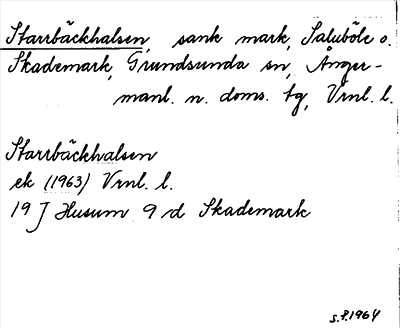 Starrbäckhalsen, sank mark, Saluböle o.
Skademark, Grundsunda sn, Ånger-
manl. n. doms. tg, Vrnl. l.
Starrbäckhalsen
ek (1963) Vrnl. l.
19 J Husum 9 d Skademark
S.F. 1964